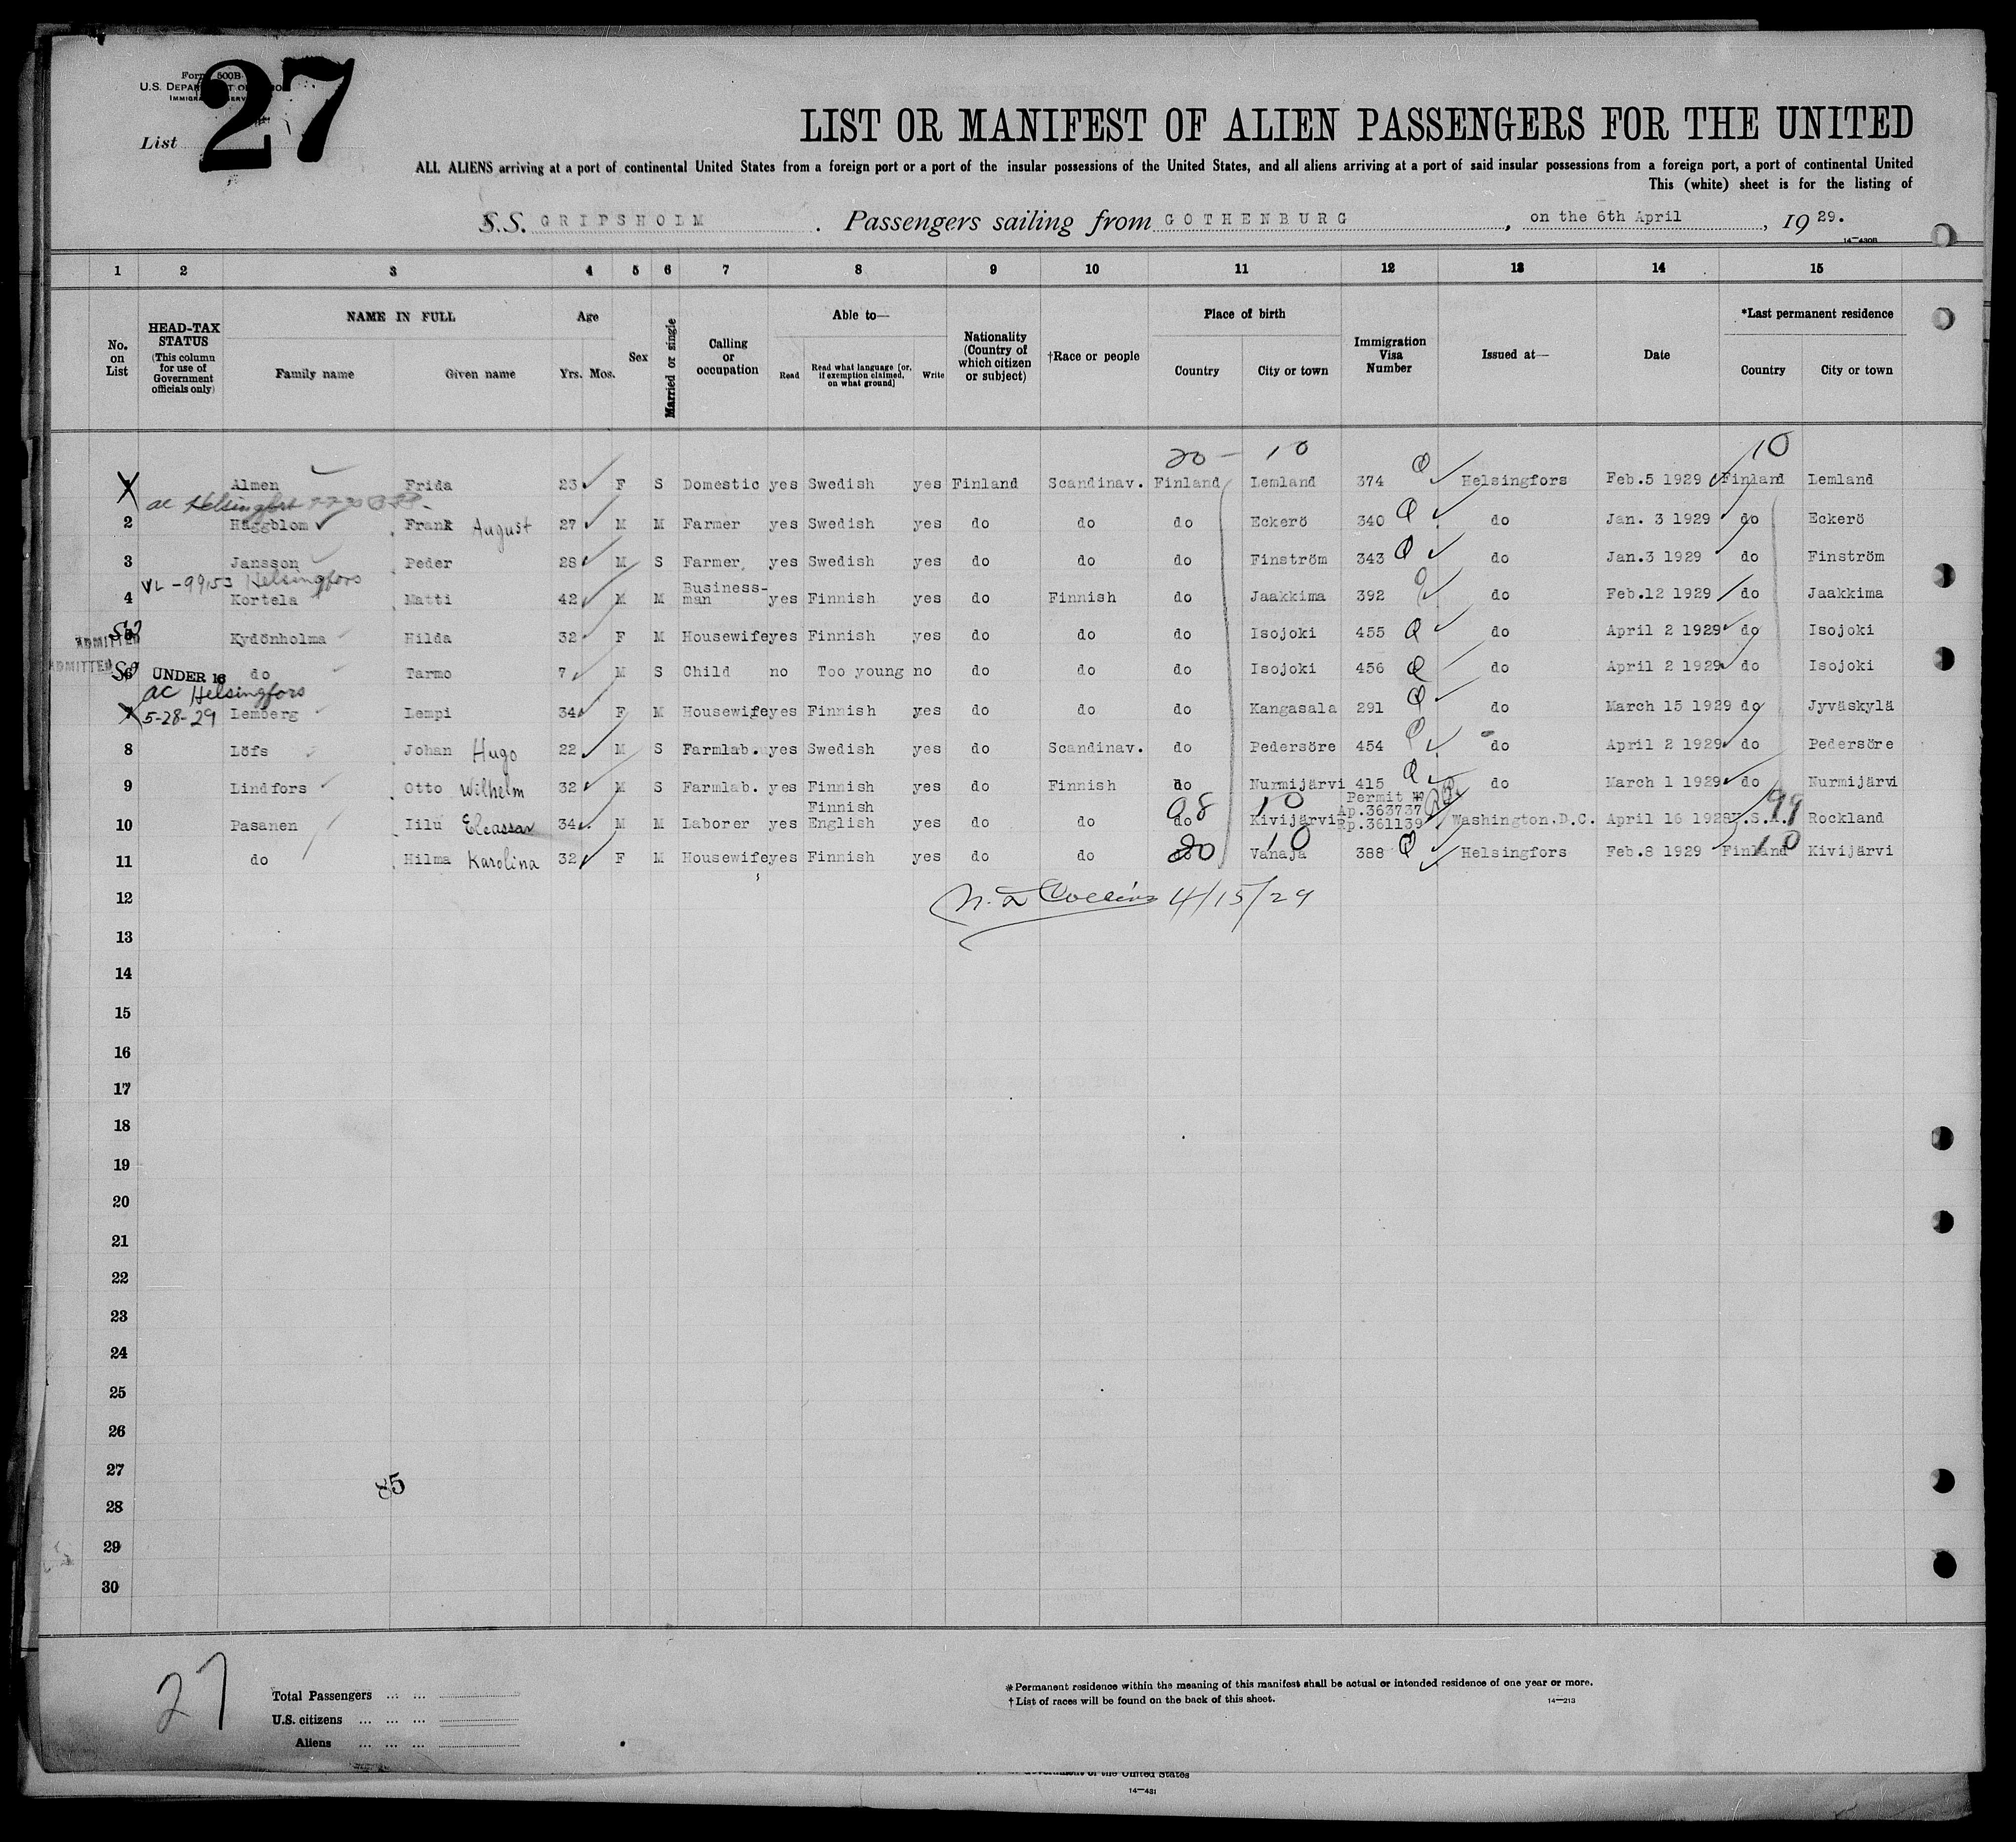 Form 500B
U.S. DEPARTMENT OF LABOR
IMMIGRATION SERVICE
27
List
LIST OR MANIFEST OF ALIEN PASSENGERS FOR THE UNITED
ALL ALIENS arriving at a port of continental United States from a foreign port or a port of the insular possessions of the United States, and all aliens arriving at a port of said insular possessions from a foreign port, a port of continental United
This (white) sheet is for the listing of
S.S. GRIPSHOLM. Passengers sailing from GOTHENBURG, on the 6th April, 19 29.
14—430B
1 2 3 4 5 6 7 8 9 10 11 12 13 14 15
No. on List
HEAD-TAX STATUS (This column for use of Government officials only)
NAME IN FULL Family name Given name
Age Yrs. Mos.
Sex
Married or single
Calling or occupation
Able to— Read Read what language [or, if exemption claimed, on what ground] Write
Nationality (Country of which citizen or subject)
†Race or people
Place of birth Country City or town
Immigration Visa Number
Issued at—
Date
*Last permanent residence Country City or town
20 - 10 10
1 Almen Frida 23 F S Domestic yes Swedish yes Finland Scandinav. Finland Lemland 374 Helsingfors Feb.5 1929 Finland Lemland
ac Helsingfors
2 Häggblom Frank August 27 M M Farmer yes Swedish yes do do do Eckerö 340 do Jan. 3 1929 do Eckerö
3 Jansson Peder 28 M S Farmer yes Swedish yes do do do Finström 343 do Jan.3 1929 do Finström
VL-99153 Helsingfors
4 Kortela Matti 42 M M Business-man yes Finnish yes do Finnish do Jaakkima 392 do Feb.12 1929 do Jaakkima
ADMITTED
5 Kydönholma Hilda 32 F M Housewife yes Finnish yes do do do Isojoki 455 do April 2 1929 do Isojoki
ADMITTED
6 UNDER 16 do Tarmo 7 M S Child no Too young no do do do Isojoki 456 do April 2 1929 do Isojoki
ac Helsingfors
7 5-28-29 Lemberg Lempi 34 F M Housewife yes Finnish yes do do do Kangasala 291 do March 15 1929 do Jyväskylä
8 Löfs Johan Hugo 22 M S Farmlab. yes Swedish yes do Scandinav. do Pedersöre 454 do April 2 1929 do Pedersöre
9 Lindfors Otto Wilhelm 32 M S Farmlab. yes Finnish yes do Finnish do Nurmijärvi 415 do March 1 1929 do Nurmijärvi
Finnish 98 10 Permit № Ap.363737 99
10 Pasanen Iilu Eleassar 34 M M Laborer yes English yes do do do Kivijärvi Rp.361139 Washington.D.C. April 16 1928 U.S.A. Rockland
20 10 10
11 do Hilma Karolina 32 F M Housewife yes Finnish yes do do do Vanaja 388 Helsingfors Feb.8 1929 Finland Kivijärvi
12 4/15/29
13
14
15
16
17
18
19
20
21
22
23
24
25
26
27
85
28
29
30
27
Total Passengers
U.S. citizens
Aliens
*Permanent residence within the meaning of this manifest shall be actual or intended residence of one year or more.
†List of races will be found on the back of this sheet. 14—213
Government of the United States
14—431